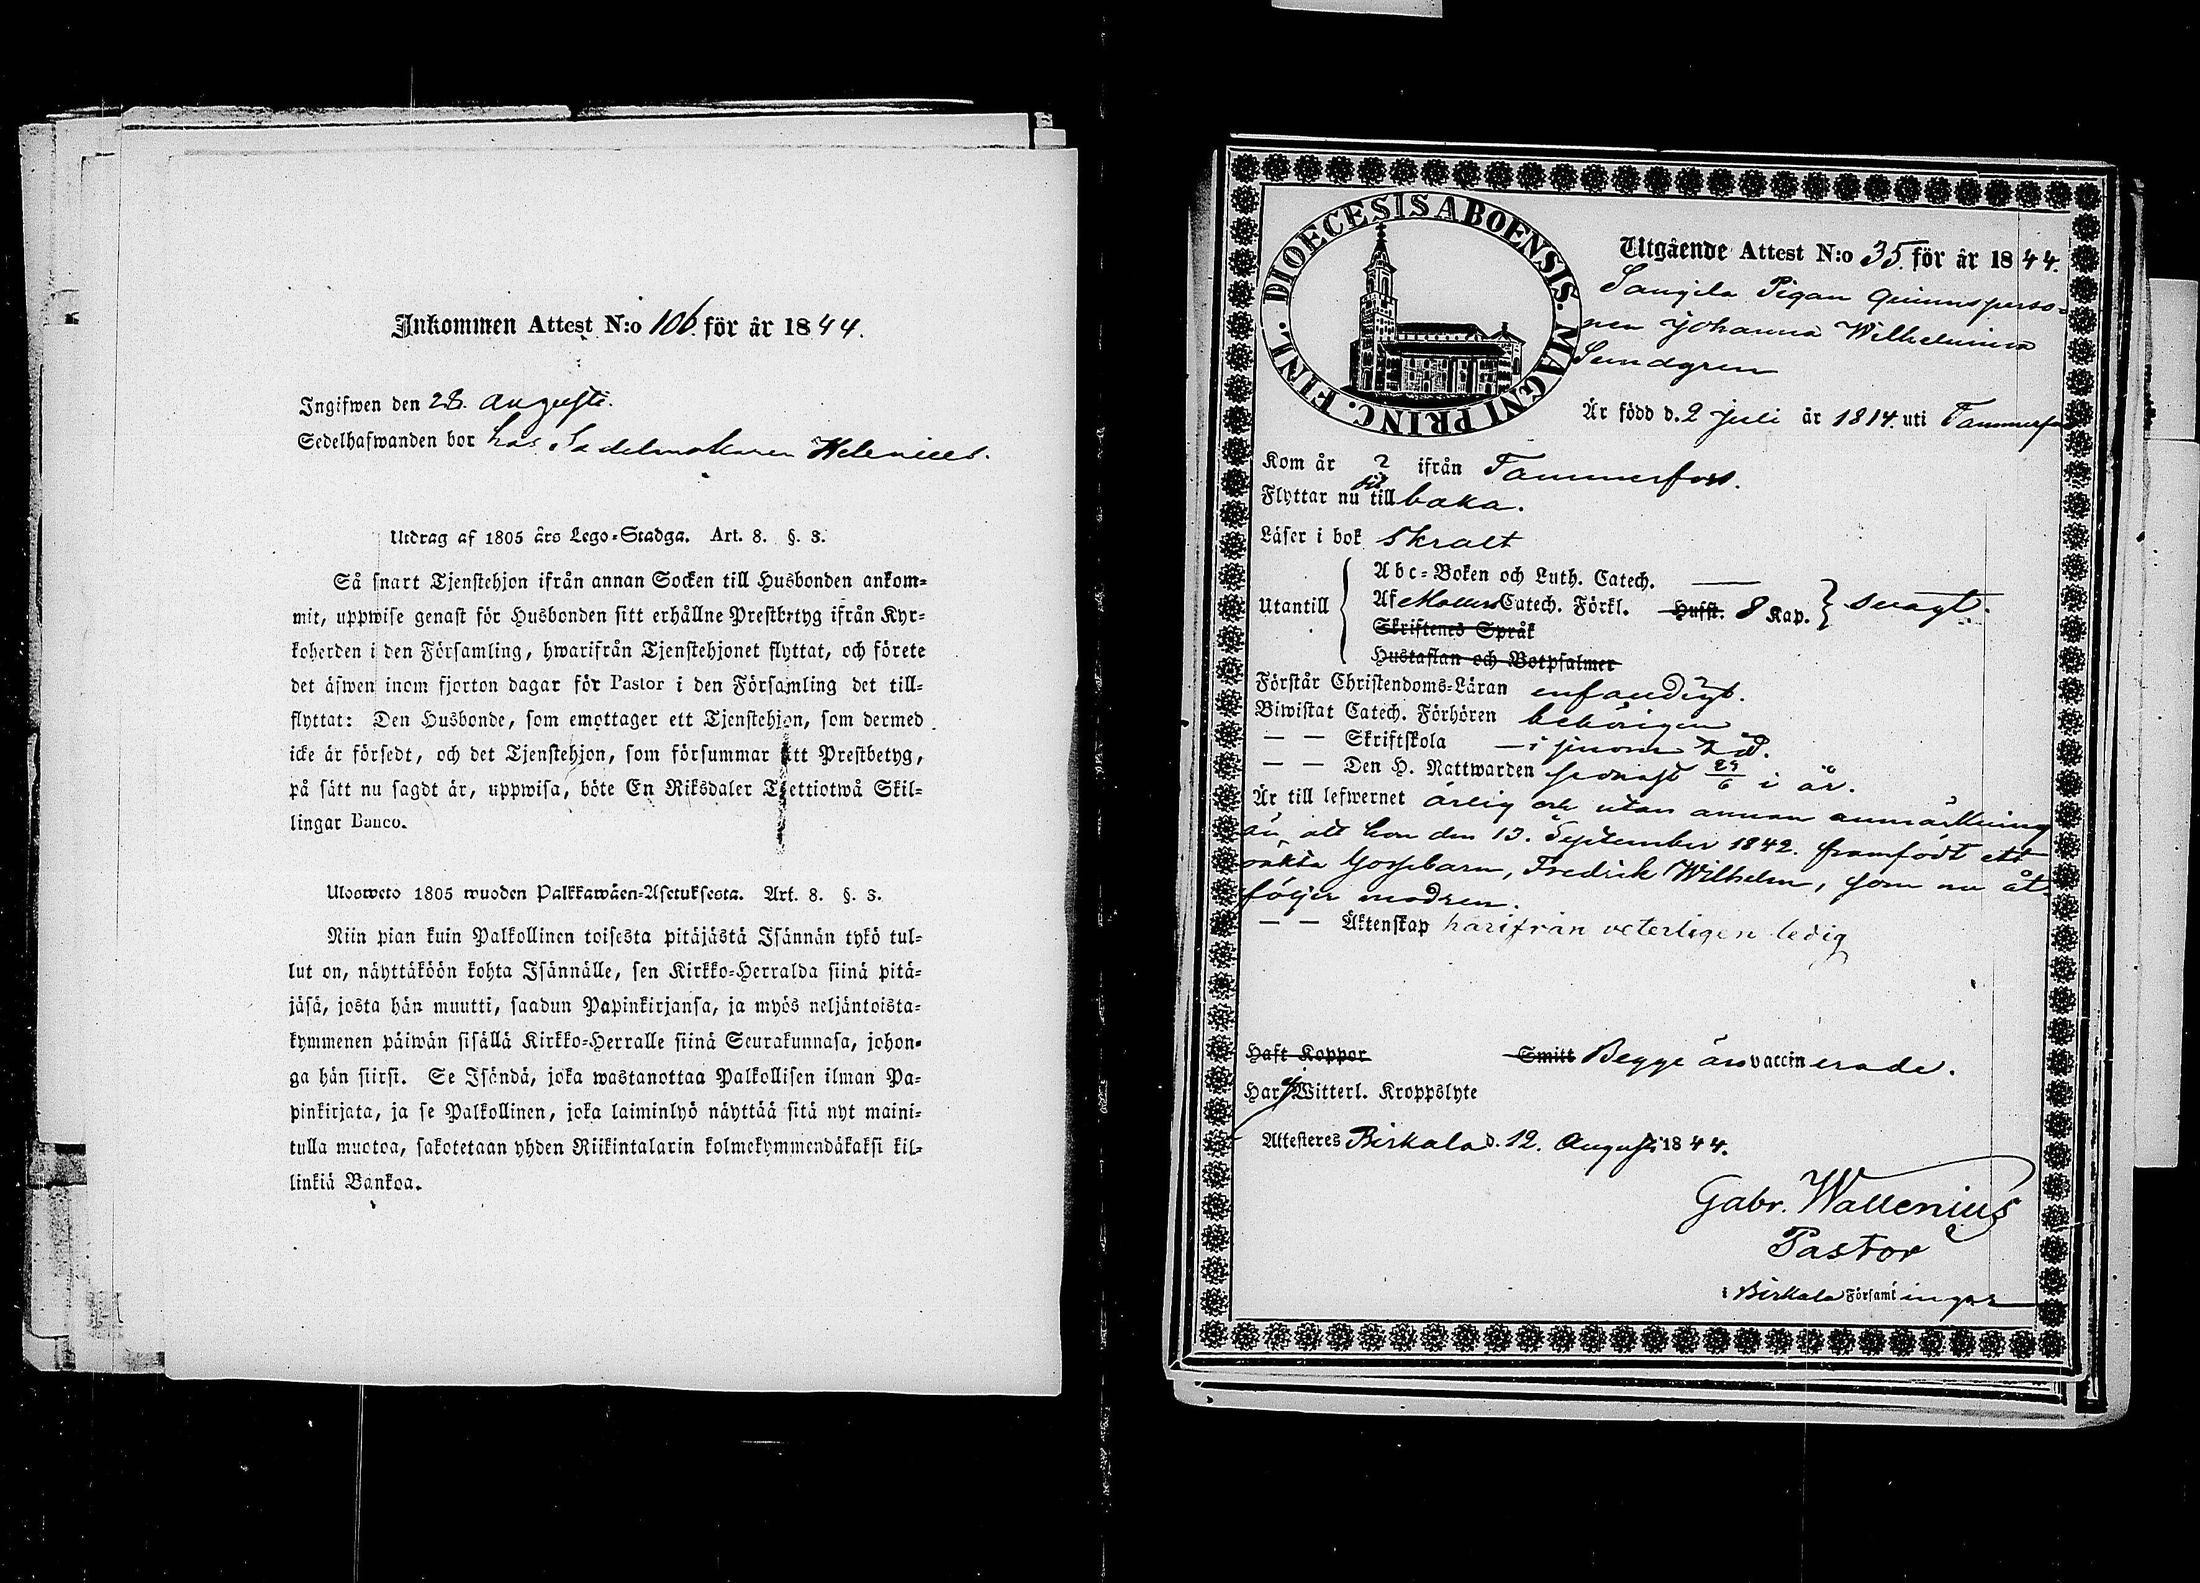 Inkommen Attest N:o 106. för år 1844.
Ingifwen den 28. Augusti.
Sedelhafwanden bor hos Sadelmakaren Helenius.
Utdrag af 1805 års Lego-Stadga. Art. 8. §. 3.
Så snart Tjenstehjon ifrån annan Socken till Husbonden ankom-
mit, uppwise genast för Husbonden sitt erhållne Prestbetyg ifrån Kyr-
koherden i den Församling, hwarifrån Tjenstehjonet flyttat, och förete
det äfwen inom fjorton dagar för Pastor i den Församling det till-
flyttat: Den Husbonde, som emottager ett Tjenstehjon, som dermed
icke är försedt, och det Tjenstehjon, som försummar att Prestbetyg,
på sätt nu sagdt är, uppwisa, böte En Riksdaler Trettiotwå Skil-
lingar Banco.
Ulosweto 1805 wuoden Palkkawäen-Asetuksesta. Art. 8. §. 3.
Niin pian kuin Palkollinen toisesta pitäjästä Isännän tykö tul-
lut on, näyttäköön kohta Isännälle, sen Kirkko-Herralda siinä pitä-
jäsä, josta hän muutti, saadun Papinkirjansa, ja myös neljäntoista-
kymmenen päiwän sisällä Kirkko-Herralle siinä Seurakunnasa, johon-
ga hän siirsi. Se Isändä, joka wastanottaa Palkollisen ilman Pa-
pinkirjata, ja se Palkollinen, joka laiminlyö näyttää sitä nyt maini-
tulla muotoa, sakotetaan yhden Riikintalarin kolmekymmendäkaksi kil-
linkiä Bankoa.
DIOECESIS ABOENSIS. MAGNI PRINC. FINL.
Utgående Attest N:o 35. för år 1844.
Pigan Qvinnsperso-
nen Johanna Wilhelmina
Sundgren
Är född d. 2 Juli år 1814. uti Tammerfors
Kom år ? ifrån Tammerfors.
Flyttar nu dit tillbaka.
Läser i bok skralt
Utantill
Abc-Boken och Luth. Catech. —
Af Möllers Catech. Förkl. Husst. 8 Kap. } svagt.
Skriftenes Språk
Hustaflan och Botpsalmer
Förstår Christendoms-Läran enfaldigt.
Biwistat Catech. Förhören behörigen
— — Skriftskola —
— — Den H. Nattwarden senast 29/6 i år.
Är till lefwernet ärlig och utan annan anmärkning
än att hon den 13. September 1842. framfödt ett
oäkta Gossebarn, Fredrik Wilhelm, som nu åt-
följer modren.
— — Äktenskap härifrån veterligen ledig
Haft Koppor Smitt Begge äro vaccinerade.
Har ej Witterl. Kroppslyte
Attesteres Birkala d. 12. Augusti 1844.
Gabr. Wallenius
Pastor
i Birkala Församlingar